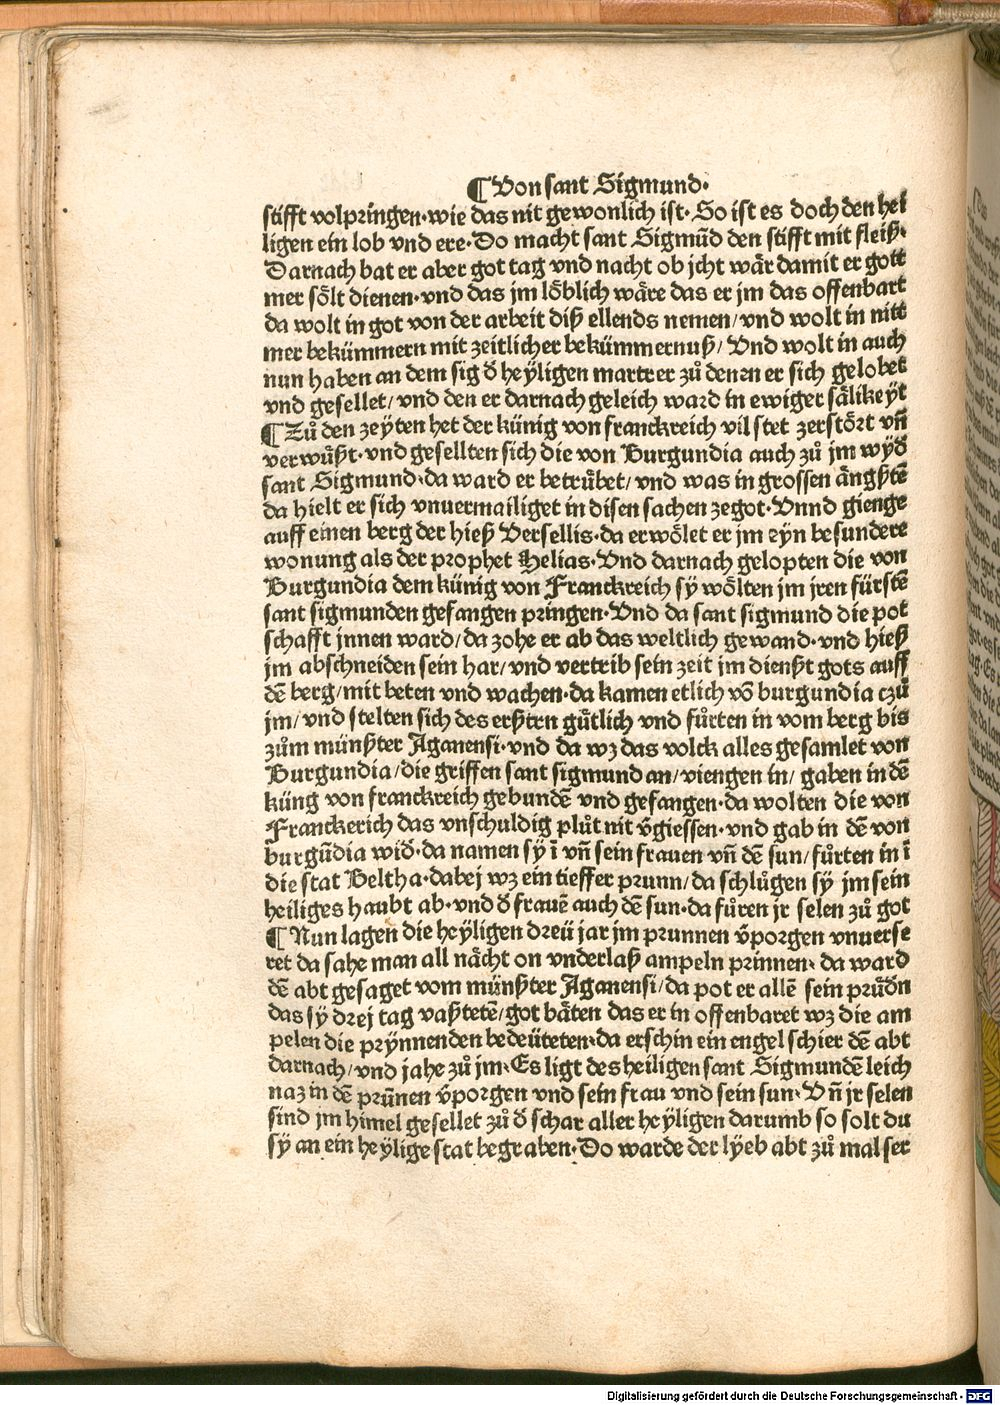 ¶Von sant Sigmund·
stifft volpringen·wie das nit gewonlich ist· So ist es doch den hei
ligen ein lob vnd ere·Do macht sant Sigmūd den stifft mit fleiß·
Darnach bat er aber got tag vnd nacht ob jcht wår damit er gott
mer sőlt dienen·vnd das jm lőblich wåre das er jm das offenbart
da wolt in got von der arbeit diß ellends nemen/vnd wolt in nitt
mer bekümmern mit zeitlicher bekümmernuß/Vnd wolt in auch
nun haben an dem sig ď heÿligen martrer zů denen er sich gelobet
vnd gesellet/vnd den er darnach geleich ward in ewiger sålikeÿt
¶Zů den zeÿten het der künig von franckreich vil stet zerstőrt vn̄
verwůßt·vnd gesellten sich die von Burgundia auch zů jm wÿď
sant Sigmund·da ward er betrůbet/vnd was in grossen ångßtē
da hielt er sich vnuermailiget in disen sachen zegot·Vnnd gienge
auff einen berg der hieß Versellis·da erwőlet er jm eÿn besundere
wonung als der prophet Helias·Vnd darnach gelopten die von
Burgundia dem künig von Franckreich sÿ wőlten jm jren fürstē
sant sigmunden gefangen pringen·Vnd da sant sigmund die pot
schafft jnnen ward/da zohe er ab das weltlich gewand·vnd hieß
jm abschneiden sein har/vnd vertrib sein zeit jm dienßt gots auff
dē berg/mit beten vnd wachen·da kamen etlich vō burgundia czů
jm/vnd stelten sich des erßten gůtlich vnd fůrten in vom berg bis
zům münßter Aganensi·vnd da wz das volck alles gesamlet von
Burgundia/die griffen sant sigmund an/viengen in/ gaben in dē
küng von franckreich gebundē vnd gefangen·da wolten die von
Franckerich das vnschuldig plůt nit v̄giessen·vnd gab in dē von
burgūdia wiď·da namen sÿ ī vn̄ sein frauen vn̄ dē sun/fůrten in ī
die stat Beltha·dabej wz ein tieffer prunn/da schlůgen sÿ jm sein
heiliges haubt ab·vnd ď frauē auch dē sun·da fůren jr selen zů got
¶Nun lagen die heÿligen dreü jar jm prunnen v̄porgen vnuerse
ret da sahe man all nåcht on vnderlaß ampeln prinnen·da ward
dē abt gesaget vom münßter Aganensi/da pot er allē sein průďn
das sÿ drej tag vaßtetē/got båten das er in offenbaret wz die am
pelen die prÿnnenden bedeüteten·da erschin ein engel schier dē abt
darnach/vnd jahe zů jm·Es ligt des heiligen sant Sigmundē leich
naz in dē prūnen v̄porgen vnd sein frau vnd sein sun·Vn̄ jr selen
sind jm himel gesellet zů ď schar aller heÿligen darumb so solt du
sÿ an ein heÿlige stat begraben·Do warde der lÿeb abt zů mal ser
Digitalisierung gefördert durch die Deutsche Forschungsgemeinschaft - DFG